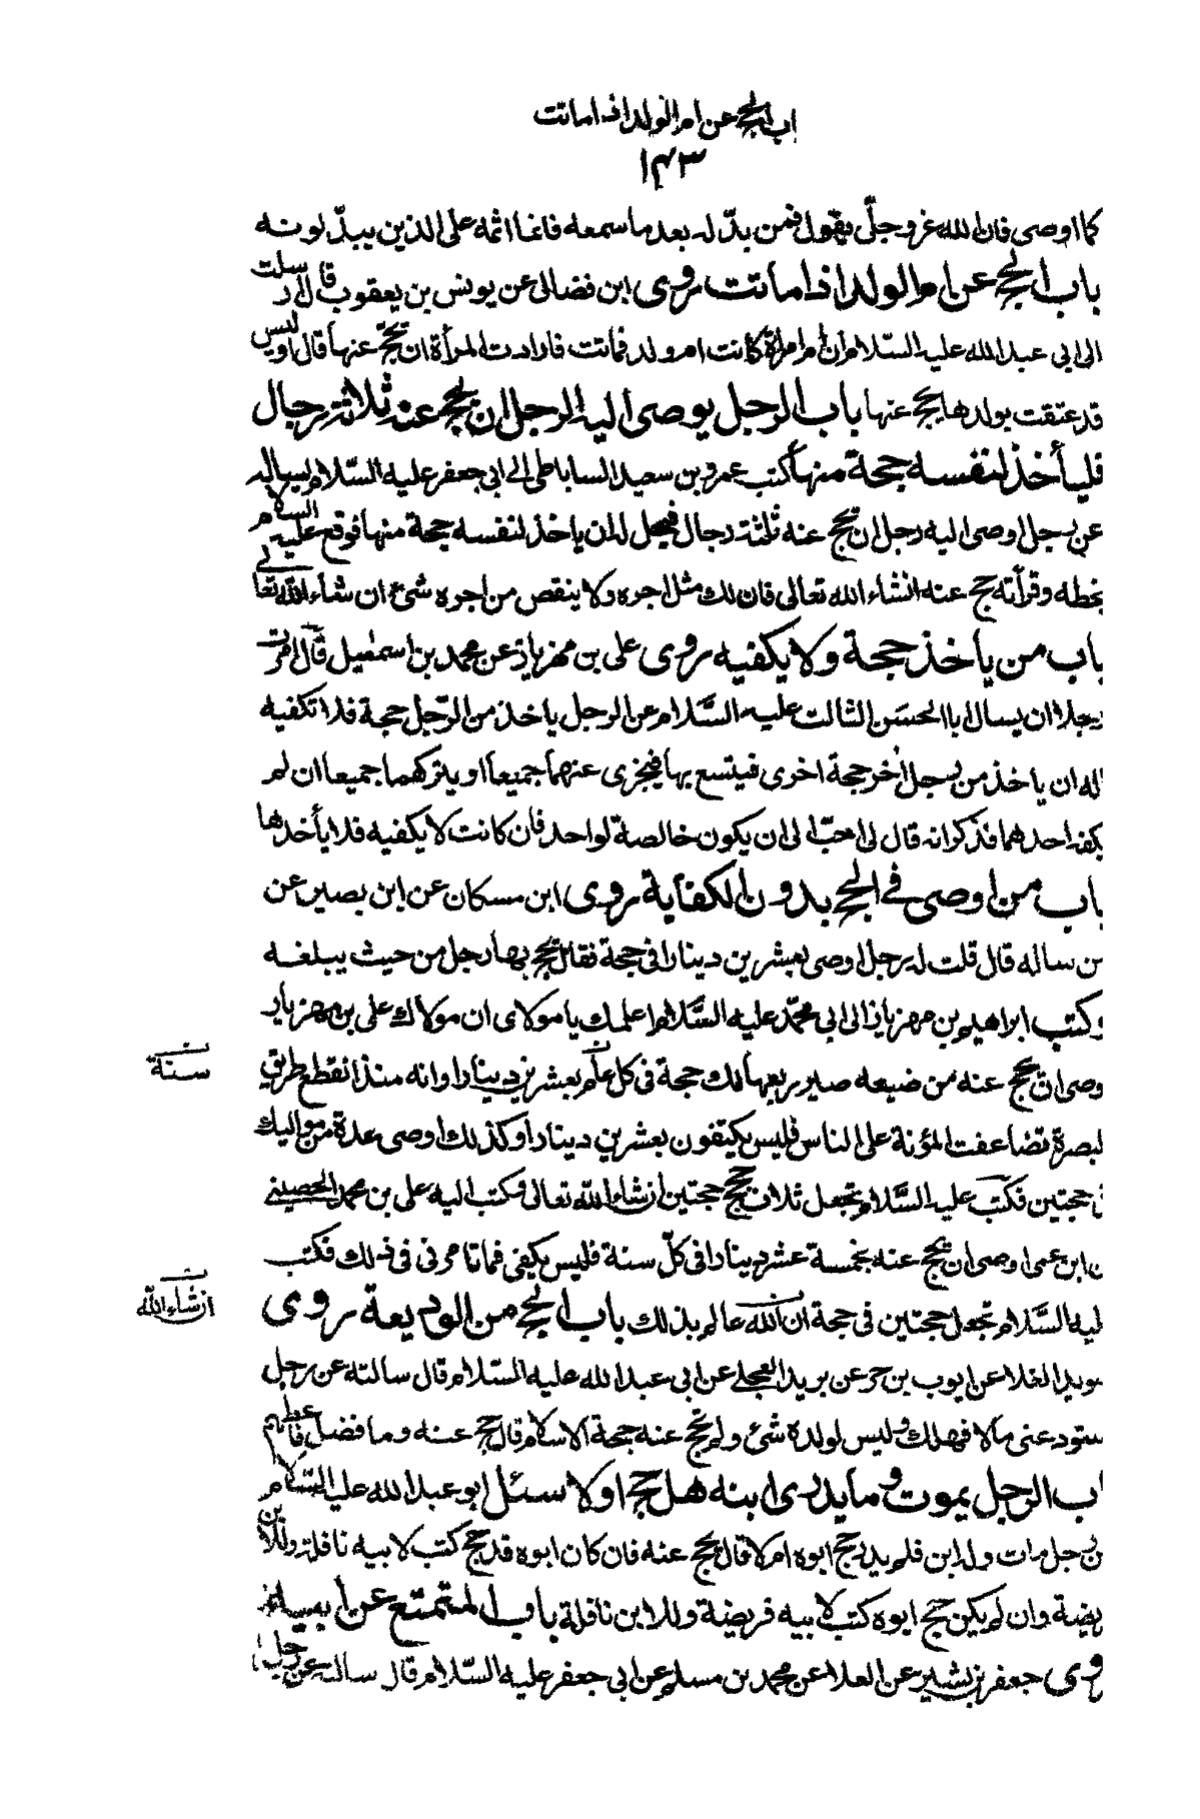 باب الحج عن ام الولد اذا ماتت
١٤٣
كما اوصى فان الله عز وجلّ يقول فمن بدّله بعد ما سمعه فانما اثمه على الذين يبدّلونه
باب الحج عن ام الولد اذا ماتت روى ابن فضال عن يونس بن يعقوب قال ارسلت
الى ابى عبد الله عليه السّلام ان امرأة كانت ام ولد فماتت فارادت المرأة ان تحجّ عنها قال اوليس
قد عتقت بولدها يحج عنها باب الرجل يوصى اليه الرجل ان يحج عنه ثلاثة رجال
فليأخذ لنفسه حجة منها كتب عمرو بن سعيد الساباطى الى ابى جعفر عليه السّلام يساله
عن رجل اوصى اليه رجل ان يحج عنه ثلثة رجال فيحل له ان ياخذ لنفسه حجة منها فوقع عليه السلام
بخطه وقرأته حج عنه انشاء الله تعالى فان لك مثل اجره ولا ينقص من اجره شئ ان شاء الله تعالى
باب من ياخذ حجة ولا يكفيه روى على بن مهزيار عن محمد بن اسمعيل قال امرت
رجلا ان يسال ابا الحسن الثالث عليه السَّلام عن الرجل ياخذ من الرّجل حجة فلا تكفيه
اله ان ياخذ من رجل اخر حجة اخرى فيتسع بها فيجزى عنهما جميعا او يتركهما جميعا ان لم
يكفه احدهما فذكر انه قال لى احبّ الى ان يكون خالصة لواحد فان كانت لا يكفيه فلا يأخذها
باب من اوصى فى الحج بدون الكفاية روى ابن مسكان عن ابن بصير عن
من ساله قال قلت له رجل اوصى بعشرين دينارا فى حجة فقال يحج بها رجل من حيث يبلغه
وكتب ابراهيم بن مهزيار الى ابى محمّد عليه السَّلام اعلمك يا مولاى ان مولاك على بن مهزيار
وصى ان يحج عنه من ضيعه صير ربعها لك حجة فى كل عام بعشرين دينارا وانه منذ انقطع طريق
سنة
لبصرة تضاعفت المؤنة على الناس فليس يكتفون بعشرين دينارا وكذلك اوصى عدة من مواليك
فى حجتين فكتب عليه السَّلام تجعل ثلاث حجج حجتين انشاء الله تعالى وكتب اليه على بن محمد الحصينى
ن ابن عمى اوصى ان يحج عنه بخمسة عشر دينارا فى كلّ سنة فليس يكفى فما تامرنى فى ذلك فكتب
ليه السَّلام تجعل حجتين فى حجة ان الله عالم بذلك باب الحج من الوديعة روى
انشاء الله
سويد القلا عن ايوب بن حر عن بريد العجلى عن ابى عبد الله عليه السّلام قال سالته عن رجل
ستودعنى مالا فهلك وليس لولده شئ ولم يحج عنه حجة الاسلام قال حج عنه وما فضل فاعطهم
اب الرجل يموت وما يدرى ابنه هل حج او لا سئل ابو عبد الله عليه السّلام
ن رجل مات وله ابن فلم يدر حج ابوه ام لا قال يحج عنه فان كان ابوه قد حج كتب لابيه نافلة وللابن
يضة وان لم يكن حج ابوه كتب لابيه فريضة وللابن نافلة باب المتمتع عن ابيه
روى جعفر بن بشير عن العلا عن محمد بن مسلم عن ابى جعفر عليه السّلام قال سالته عن رجل